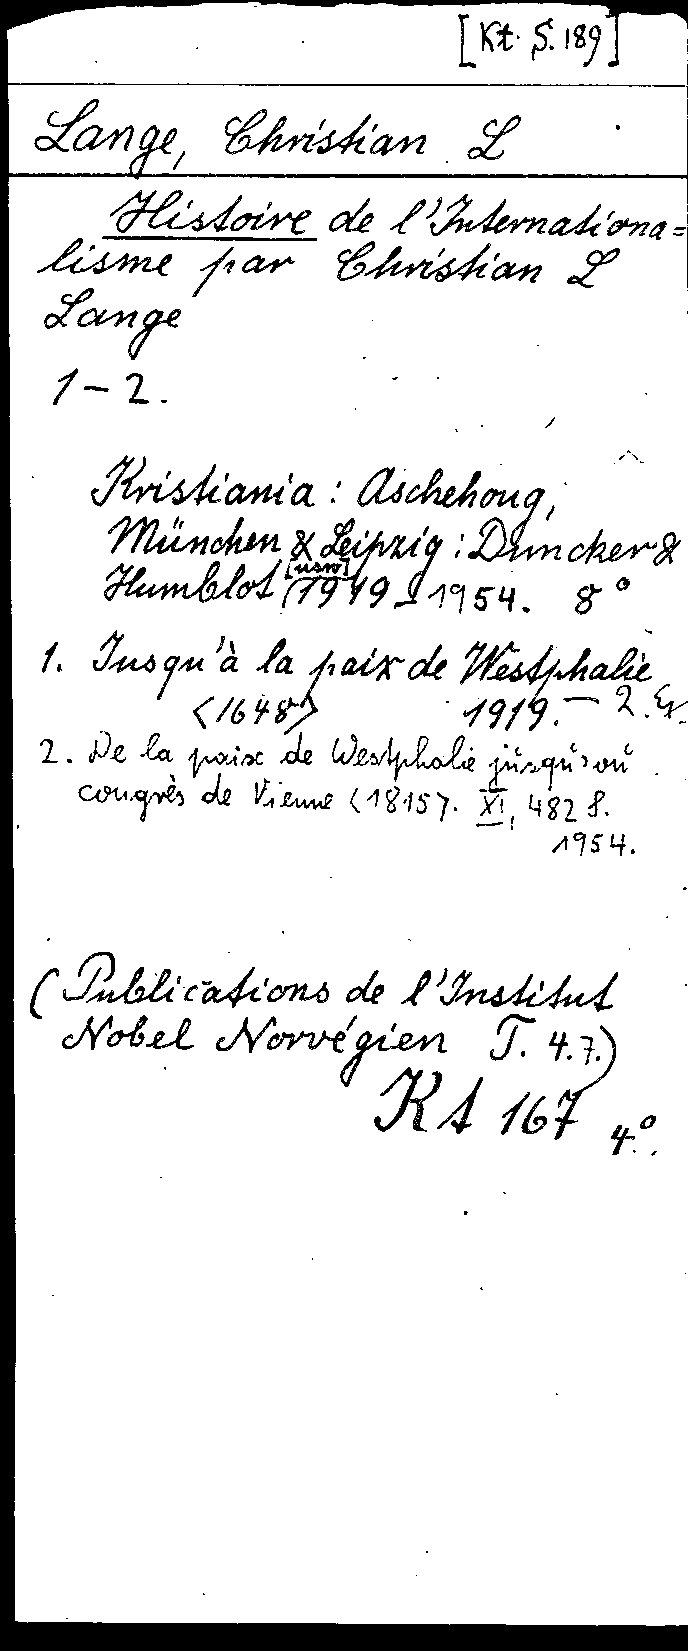 [Kt. S. 189]
Lange, Christian L
Histoire de l'Internationa=
lisme par Christian L
Lange
1-2.
Kristiania: Aschehoug,
München & Leipzig: Duncker &
Humblot [usw] 1919-1954. 8°
1. Jusqu'à la paix de Westphalie
<1648> 1919. - 2. Ex.
2. De la paix de Westphalie jusqu'au
congrès de Vienne <1815>. XI, 482 S.
1954.
(Publications de l'Institut
Nobel Norvégien T. 4.7.)
Kt 167 4°.